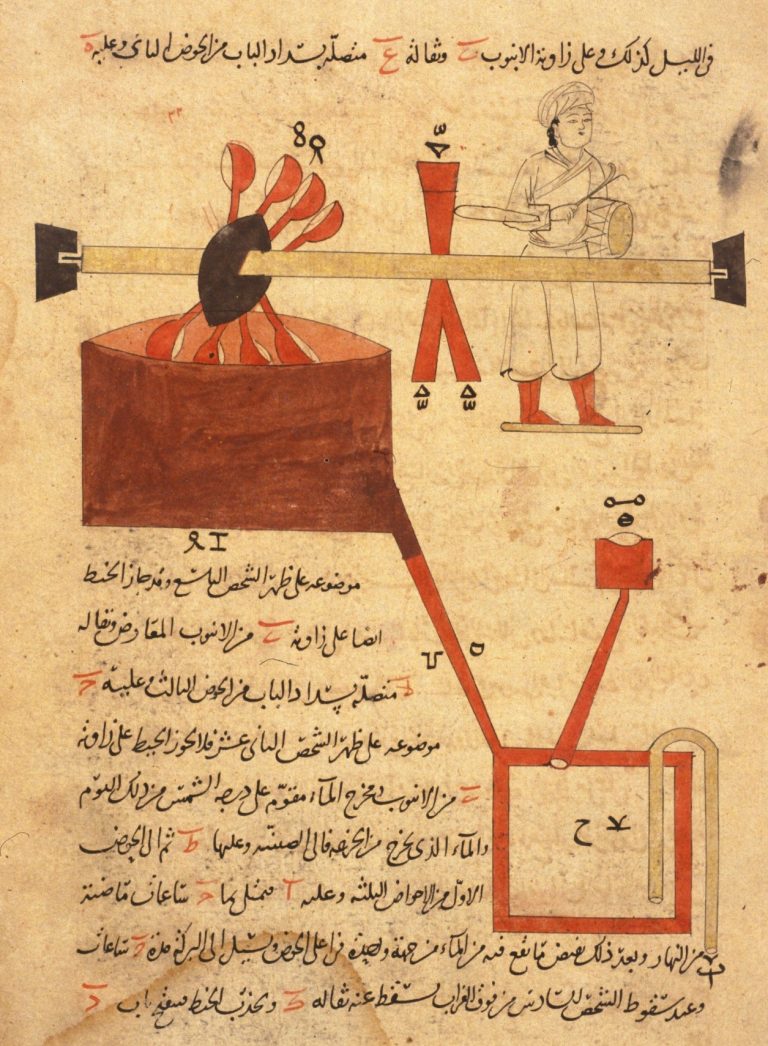 في الليل كذلك وعلى زاوية الانبوب وثقاله ع متصله بسداد الباب من الحوض الثاني وعليه ه
موضوعه على ظهر الشخص التاسع وقد جاز الخيط
ايضا على زاوية من الانبوب المعارض وثقاله
متصله بسداد الباب من الحوض الثالث وعليه
موضوعه على ظهر الشخص الثاني عشر فلا يجوز الخيط على زاوية
من الانبوب ومخرج الماء مقوم على درجة الشمس من ذلك اليوم
والماء الذي يخرج من الجزعه فالى الصينية وعليها ط ثم الى الحوض
الاول من الاحواض الثلثة وعليه ا فيمتلي بما ساعات ماضية
من النهار وبعد ذلك يفيض ما يقع فيه من الماء من جهة واحدة في اعلى الحوض ويسيل الى البركة مدة ساعات
وعند سقوط الشخص السادس من فوق الغراب يسقط عنه ثقاله ويجذب الخيط فيفتح باب